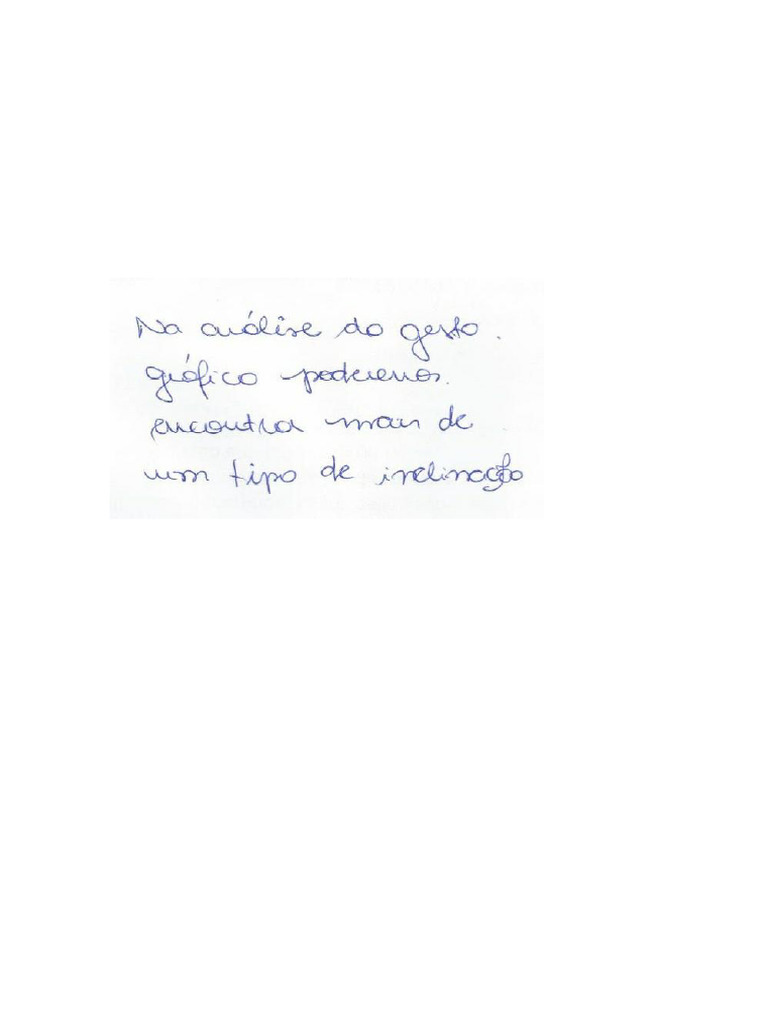 Na análise do gesto.
gráfico poderemos.
encontrar mais de
um tipo de inclinação